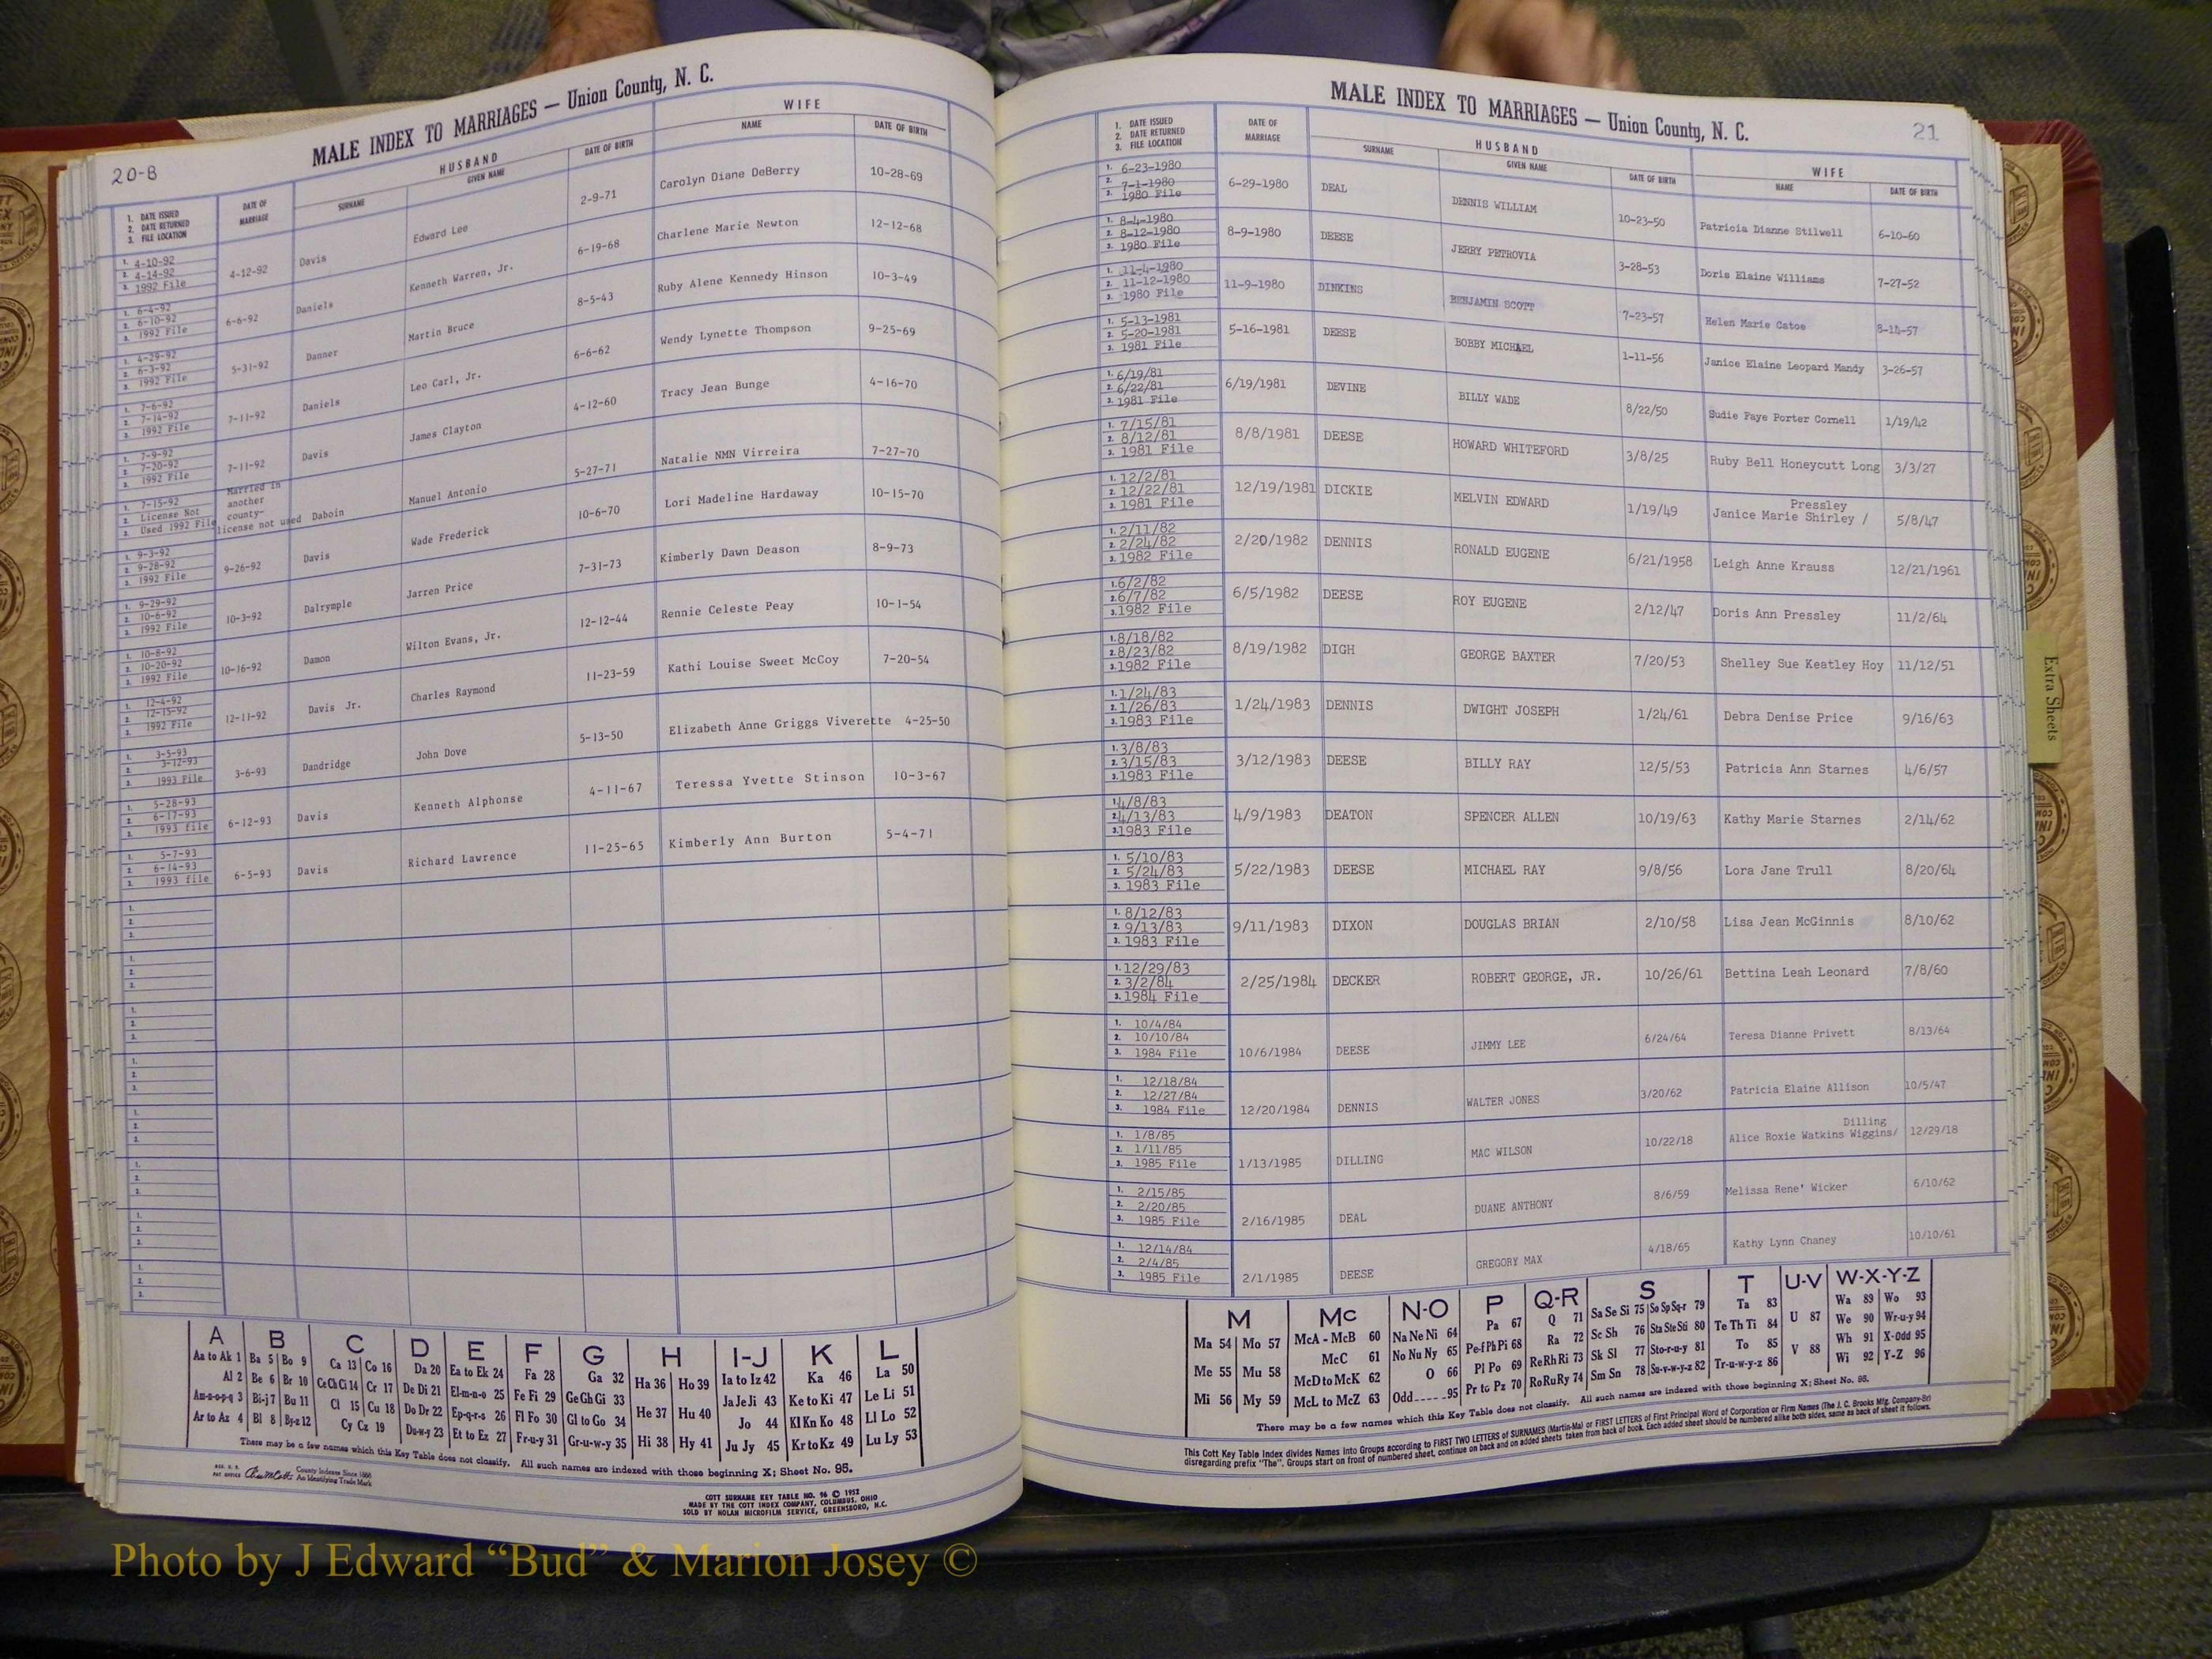 20-B
MALE INDEX TO MARRIAGES — Union County, N. C.
1. DATE ISSUED 2. DATE RETURNED 3. FILE LOCATION
DATE OF MARRIAGE
HUSBAND
SURNAME GIVEN NAME DATE OF BIRTH
WIFE
NAME DATE OF BIRTH
1. 4-10-92 2. 4-14-92 3. 1992 File 4-12-92 Davis Edward Lee 2-9-71 Carolyn Diane DeBerry 10-28-69
1. 6-4-92 2. 6-10-92 3. 1992 File 6-6-92 Daniels Kenneth Warren, Jr. 6-19-68 Charlene Marie Newton 12-12-68
1. 4-29-92 2. 6-3-92 3. 1992 File 5-31-92 Danner Martin Bruce 8-5-43 Ruby Alene Kennedy Hinson 10-3-49
1. 7-6-92 2. 7-14-92 3. 1992 File 7-11-92 Daniels Leo Carl, Jr. 6-6-62 Wendy Lynette Thompson 9-25-69
1. 7-9-92 2. 7-20-92 3. 1992 File 7-11-92 Davis James Clayton 4-12-60 Tracy Jean Bunge 4-16-70
1. 7-15-92 2. License Not 3. Used 1992 File Married in another county- license not used Daboin Manuel Antonio 5-27-71 Natalie NMN Virreira 7-27-70
1. 9-3-92 2. 9-28-92 3. 1992 File 9-26-92 Davis Wade Frederick 10-6-70 Lori Madeline Hardaway 10-15-70
1. 9-29-92 2. 10-6-92 3. 1992 File 10-3-92 Dalrymple Jarren Price 7-31-73 Kimberly Dawn Deason 8-9-73
1. 10-8-92 2. 10-20-92 3. 1992 File 10-16-92 Damon Wilton Evans, Jr. 12-12-44 Rennie Celeste Peay 10-1-54
1. 12-4-92 2. 12-15-92 3. 1992 File 12-11-92 Davis Jr. Charles Raymond 11-23-59 Kathi Louise Sweet McCoy 7-20-54
1. 3-5-93 2. 3-12-93 3. 1993 File 3-6-93 Dandridge John Dove 5-13-50 Elizabeth Anne Griggs Viverette 4-25-50
1. 5-28-93 2. 6-17-93 3. 1993 file 6-12-93 Davis Kenneth Alphonse 4-11-67 Teressa Yvette Stinson 10-3-67
1. 5-7-93 2. 6-14-93 3. 1993 file 6-5-93 Davis Richard Lawrence 11-25-65 Kimberly Ann Burton 5-4-71
1. 2. 3.
1. 2. 3.
1. 2. 3.
1. 2. 3.
1. 2. 3.
1. 2. 3.
1. 2. 3.
1. 2. 3.
A B C D E F G H I-J K L
Aa to Ak 1 Ba 5 Bo 9 Ca 13 Co 16 Da 20 Ea to Ek 24 Fa 28 Ga 32 Ha 36 Ho 39 Ia to Iz 42 Ka 46 La 50
Al 2 Be 6 Br 10 Ce Ch Ci 14 Cr 17 De Di 21 El-m-n-o 25 Fe Fi 29 Ge Gh Gi 33 He 37 Hu 40 Ja Je Ji 43 Ke to Ki 47 Le Li 51
Am-n-o-p-q 3 Bi-j 7 Bu 11 Cl 15 Cu 18 Do Dr 22 Ep-q-r-s 26 Fl Fo 30 Gl to Go 34 Hi 38 Hy 41 Jo 44 Kl Kn Ko 48 Ll Lo 52
Ar to Az 4 Bl 8 By-z 12 Cy Cz 19 Du-w-y 23 Et to Ez 27 Fr-u-y 31 Gr-u-w-y 35 Ju Jy 45 Kr to Kz 49 Lu Ly 53
There may be a few names which this Key Table does not classify. All such names are indexed with those beginning X; Sheet No. 95.
County Indexes Since 1888
An Identifying Trade Mark
COTT SURNAME KEY TABLE NO. 96 © 1952
MADE BY THE COTT INDEX COMPANY, COLUMBUS, OHIO
SOLD BY NOLAN MICROFILM SERVICE, GREENSBORO, N.C.
MALE INDEX TO MARRIAGES — Union County, N. C.
21
1. DATE ISSUED 2. DATE RETURNED 3. FILE LOCATION
DATE OF MARRIAGE
HUSBAND
SURNAME GIVEN NAME DATE OF BIRTH
WIFE
NAME DATE OF BIRTH
1. 6-23-1980 2. 7-1-1980 3. 1980 File 6-29-1980 DEAL DENNIS WILLIAM 10-23-50 Patricia Dianne Stilwell 6-10-60
1. 8-4-1980 2. 8-12-1980 3. 1980 File 8-9-1980 DEESE JERRY PETROVIA 3-28-53 Doris Elaine Williams 7-27-52
1. 11-4-1980 2. 11-12-1980 3. 1980 File 11-9-1980 DINKINS BENJAMIN SCOTT 7-23-57 Helen Marie Catoe 8-14-57
1. 5-13-1981 2. 5-20-1981 3. 1981 File 5-16-1981 DEESE BOBBY MICHAEL 1-11-56 Janice Elaine Leopard Mandy 3-26-57
1. 6/19/81 2. 6/22/81 3. 1981 File 6/19/1981 DEVINE BILLY WADE 8/22/50 Sudie Faye Porter Cornell 1/19/42
1. 7/15/81 2. 8/12/81 3. 1981 File 8/8/1981 DEESE HOWARD WHITEFORD 3/8/25 Ruby Bell Honeycutt Long 3/3/27
1. 12/2/81 2. 12/22/81 3. 1981 File 12/19/1981 DICKIE MELVIN EDWARD 1/19/49 Janice Marie Shirley / Pressley 5/8/47
1. 2/11/82 2. 2/24/82 3. 1982 File 2/20/1982 DENNIS RONALD EUGENE 6/21/1958 Leigh Anne Krauss 12/21/1961
1. 6/2/82 2. 6/7/82 3. 1982 File 6/5/1982 DEESE ROY EUGENE 2/12/47 Doris Ann Pressley 11/2/64
1. 8/18/82 2. 8/23/82 3. 1982 File 8/19/1982 DIGH GEORGE BAXTER 7/20/53 Shelley Sue Keatley Hoy 11/12/51
1. 1/24/83 2. 1/26/83 3. 1983 File 1/24/1983 DENNIS DWIGHT JOSEPH 1/24/61 Debra Denise Price 9/16/63
1. 3/8/83 2. 3/15/83 3. 1983 File 3/12/1983 DEESE BILLY RAY 12/5/53 Patricia Ann Starnes 4/6/57
1. 4/8/83 2. 4/13/83 3. 1983 File 4/9/1983 DEATON SPENCER ALLEN 10/19/63 Kathy Marie Starnes 2/14/62
1. 5/10/83 2. 5/24/83 3. 1983 File 5/22/1983 DEESE MICHAEL RAY 9/8/56 Lora Jane Trull 8/20/64
1. 8/12/83 2. 9/13/83 3. 1983 File 9/11/1983 DIXON DOUGLAS BRIAN 2/10/58 Lisa Jean McGinnis 8/10/62
1. 12/29/83 2. 3/2/84 3. 1984 File 2/25/1984 DECKER ROBERT GEORGE, JR. 10/26/61 Bettina Leah Leonard 7/8/60
1. 10/4/84 2. 10/10/84 3. 1984 File 10/6/1984 DEESE JIMMY LEE 6/24/64 Teresa Dianne Privett 8/13/64
1. 12/18/84 2. 12/27/84 3. 1984 File 12/20/1984 DENNIS WALTER JONES 3/20/62 Patricia Elaine Allison 10/5/47
1. 1/8/85 2. 1/11/85 3. 1985 File 1/13/1985 DILLING MAC WILSON 10/22/18 Alice Roxie Watkins Wiggins/ Dilling 12/29/18
1. 2/15/85 2. 2/20/85 3. 1985 File 2/16/1985 DEAL DUANE ANTHONY 8/6/59 Melissa Rene' Wicker 6/10/62
1. 12/14/84 2. 2/4/85 3. 1985 File 2/1/1985 DEESE GREGORY MAX 4/18/65 Kathy Lynn Chaney 10/10/61
M Mc N-O P Q-R S T U-V W-X-Y-Z
Ma 54 Mo 57 McA - McB 60 Na Ne Ni 64 Pa 67 Q 71 Sa Se Si 75 So Sp Sq-r 79 Ta 83 U 87 Wa 89 Wo 93
Me 55 Mu 58 McC 61 No Nu Ny 65 Pe-f Ph Pi 68 Ra 72 Sc Sh 76 Sta Ste Sti 80 Te Th Ti 84 V 88 We 90 Wr-u-y 94
Mi 56 My 59 McD to McK 62 O 66 Pl Po 69 Re Rh Ri 73 Sk Sl 77 Sto-r-u-y 81 To 85 Wh 91 X-Odd 95
McL to McZ 63 Odd 95 Pr to Pz 70 Ro Ru Ry 74 Sm Sn 78 Su-v-w-y-z 82 Tr-u-w-y-z 86 Wi 92 Y-Z 96
There may be a few names which this Key Table does not classify. All such names are indexed with those beginning X; Sheet No. 95.
This Cott Key Table Index divides Names into Groups according to FIRST TWO LETTERS of SURNAMES (Martin-Ma) or FIRST LETTERS of First Principal Word of Corporation or Firm Names (The J. C. Brooks Mfg. Company-Br)
disregarding prefix "The". Groups start on front of numbered sheet, continue on back and on added sheets taken from back of book. Each added sheet should be numbered alike both sides, same as back of sheet it follows.
Extra Sheets
Photo by J Edward “Bud” & Marion Josey ©